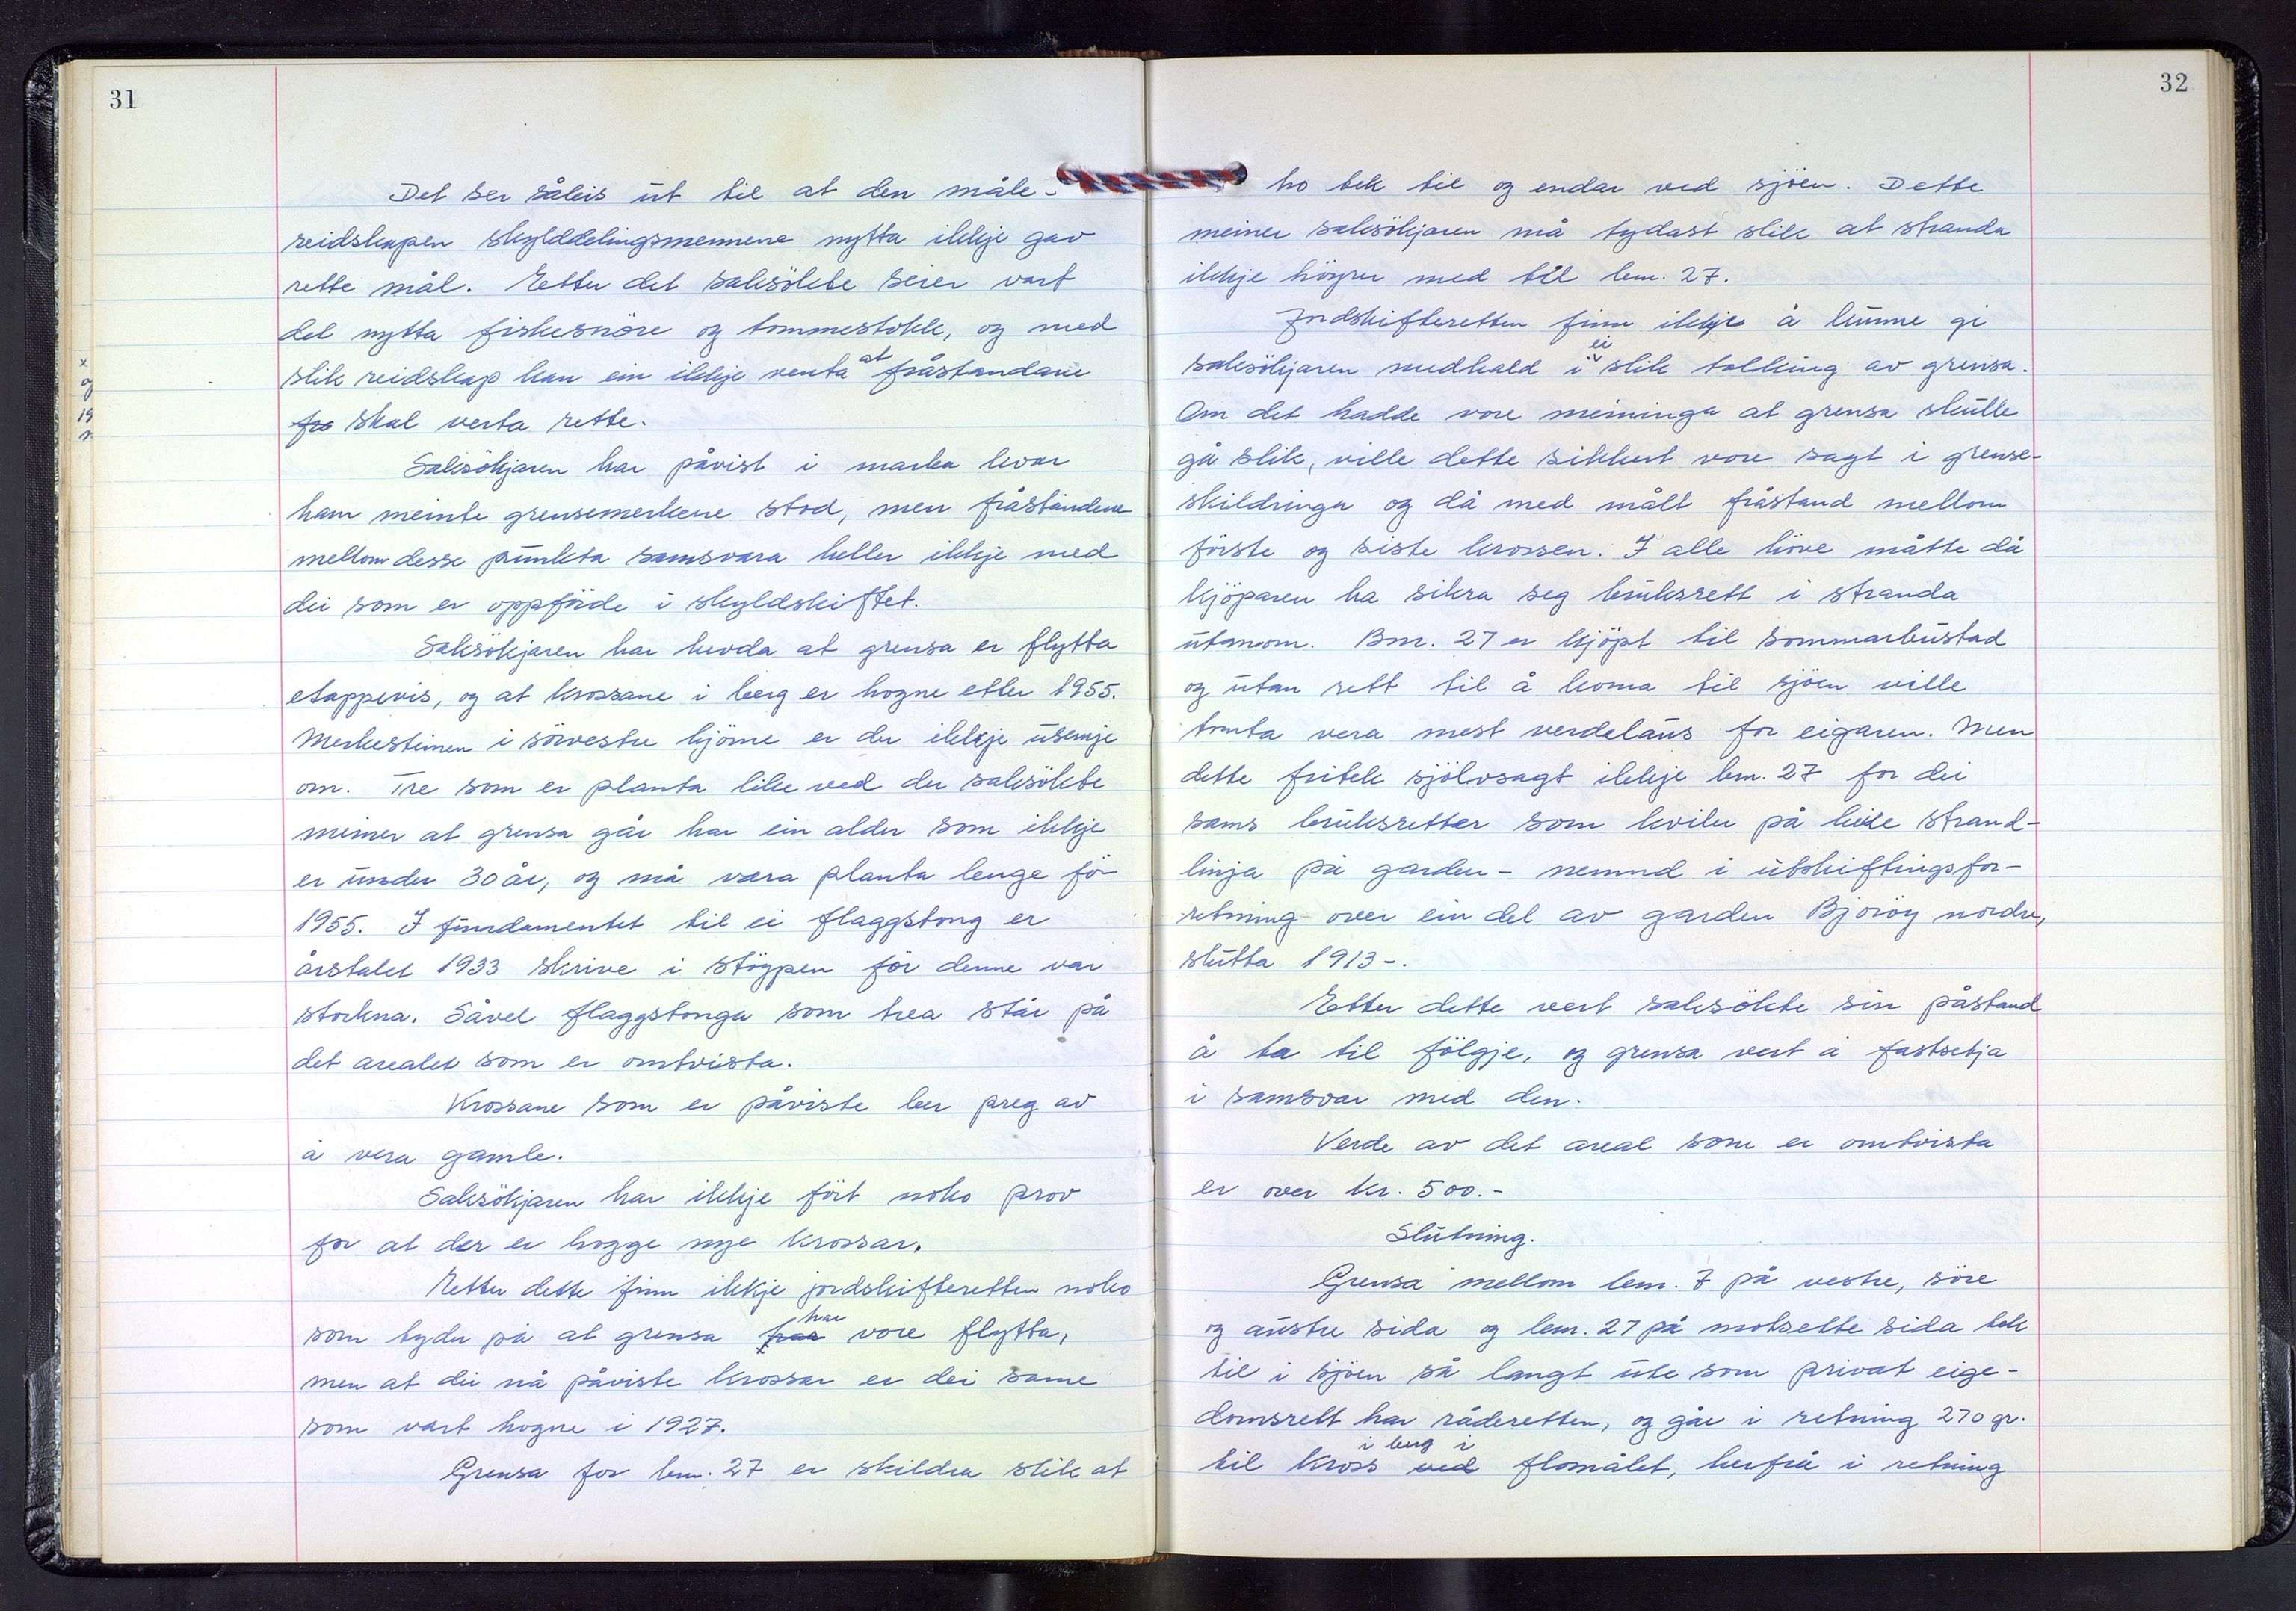 31
Det ser såleis ut til at den måle-
reidskapen skylddelingsmennene nytta ikkje gav
rette mål. Etter det saksökte seier vart
det nytta fiskesnöre og tommestokk, og med
slik reidskap kan ein ikkje venta at fråstandane
fro skal verta rette.
Saksökjaren har påvist i marka kvar
ham meinte grensemerkene stod, men fråstandene
mellom desse punkta samsvara heller ikkje med
dei som er oppförde i skyldskiftet.
Saksökjaren har hevda at grensa er flytta
etappevis, og at krossane i berg er hogne etter 1955.
Merkesteinen i sörvestre hjörne er der ikkje usemje
om. Tre som er planta like ved der saksökte
meiner at grensa går har ein alder som ikkje
er under 30 år, og må vera planta lenge för
1955. I fundamentet til ei flaggstong er
årstalet 1933 skrive i stöypen för denne var
storkna. Såvel flaggstonga som trea står på
det arealet som er omtvista.
Krossane som er påviste ber preg av
å vera gamle.
Saksökjaren har ikkje fört noko prov
for at der er hogge nye krossar.
Etter dette finn ikkje jordskifteretten noko
som tyder på at grensa har vore flytta,
men at dei nå påviste krossar er dei same
som vart hogne i 1927.
Grensa for bnr. 27 er skildra slik at
32
ho tek til og endar ved sjöen. Dette
meiner saksökjaren må tydast slik at stranda
ikkje höyrer med til bnr. 27.
Jordskifteretten finn ikkje å kunne gi
saksökjaren medhald i ei slik tolking av grensa.
Om det hadde vore meininga at grensa skulle
gå slik, ville dette sikkert vore sagt i grense-
skildringa og då med målt fråstand mellom
förste og siste krossen. I alle höve måtte då
kjöparen ha sikra seg bruksrett i stranda
utanom. Bnr. 27 er kjöpt til sommarbustad
og utan rett til å koma til sjöen ville
tomta vera mest verdelaus for eigaren. Men
dette fritek sjölvsagt ikkje bnr. 27 for dei
sams bruksretter som kviler på heile strand-
linja på garden - nemnd i utskiftingsfor-
retning over ein del av garden Bjoröy nordre,
slutta 1913 -.
Etter dette vert saksökte sin påstand
å ta til fölgje, og grensa vert å fastsetja
i samsvar med den.
Verde av det areal som er omtvista
er over kr. 500.-
Slutning.
Grensa mellom bnr. 7 på vestre, söre
og austre sida og bnr. 27 på motsette sida tek
til i sjöen så langt ute som privat eige-
domsrett har råderetten, og går i retning 270 gr.
til kross ved i berg i flomålet, herfrå i retning